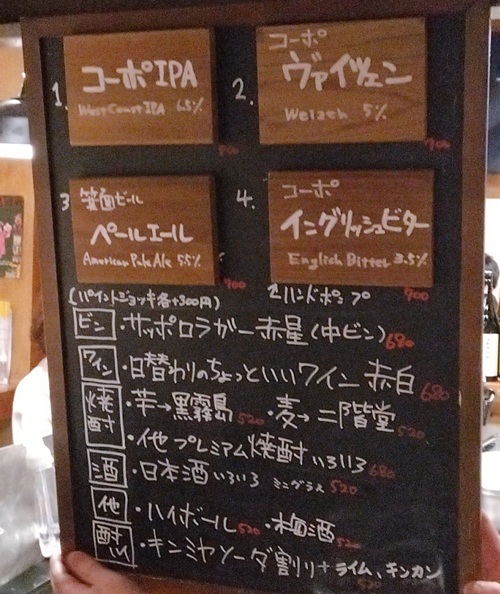 1. コーポIPA
West Coast IPA 6.5%
700
2. コーポ
ヴァイツェン
Weizen 5%
700
3 箕面ビール
ペールエール
American Pale Ale 5.5%
700
4. コーポ
イングリッシュビター
English Bitter 3.5%
700
(パイントジョッキ各+300円)
ハンドポンプ
ビン ・サッポロラガー赤星(中ビン) 680
ワイン ・日替わりのちょっといいワイン 赤白 680
焼酎 ・芋→黒霧島 520 ・麦→二階堂 520
・他プレミアム焼酎いろいろ 680
酒 ・日本酒いろいろ ミニグラス 520
他 ・ハイボール 520 ・梅酒 520
酎ハイ ・キンミヤソーダ割り+ライム、キンカン
520